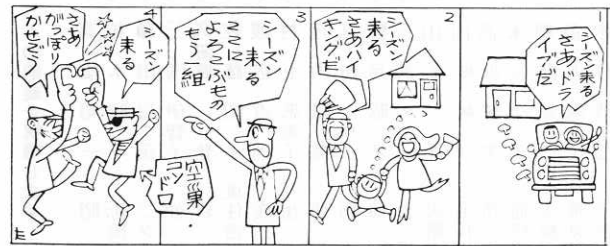 1
シーズン来る
さあドラ
イブだ
2
シーズン
来る
さあハイ
キングだ
3
シーズン
来る
ここに
よろこぶもの
もう一組
4
シーズン
来る
さあ
がっぽり
かせごう
空巣・
コンドロ